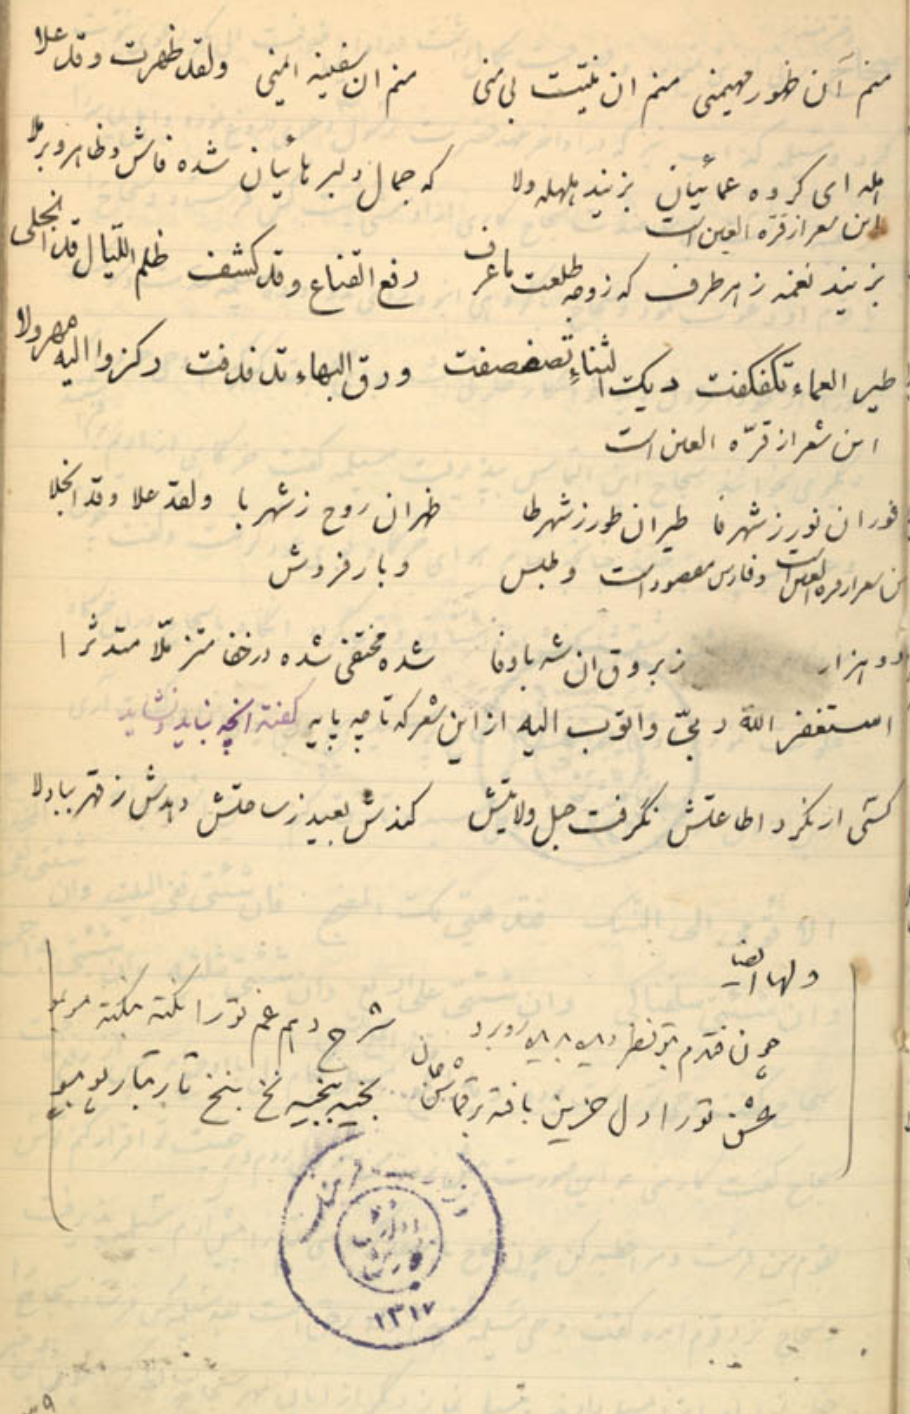 منم آن ظهور مهیمنی منم ان نیت بی منی منم ان سفینه ایمنی ولقد ظهرت وقد علا
هله ای کروه عمائیان بزنید هلهله ولا که جمال دلبر فائیان شده فاش و ظاهر و برملا
این شعر از قرة العین است
بزنید نغمه ز هر طرف که ز وجه طلعت ما عرف رفع القناع وقد کشف ظلم اللیال قد انجلی
طیر العماء تکفکفت دیک الثناء تصفصفت ورق البهاء تدفدفت رکزوا الیه مهرولا
این شعر از قرّه العین است
فوران نور ز شهر فا طیران طور ز شهر طا ظهران روح ز شهر با ولقد علا وقد انجلا
این شعر از قره العین است و فارس مقصود است و طبس و بارفروش
دو هزار ز بروق ان شه باوفا شده مختفی شده در خفا متزملا متدثرا
استغفر الله ربّی واتوب الیه از این شعر که تا چه پایه کفته انچه نباید و نشاید
کسی ار نکرد اطاعتش نکرفت حبل ولایتش کندش بعید ز ساحتش دهدش ز قهر بباد لا
ولها ایضا
چون فتدم بتو نظر رو برو شرح دهم غم تو را نکته بنکته مو بمو
عشق تو را دل حزین بافته بر قماش جان بخیه ببخیه نخ بنخ تار بتار پو بپو
۱۳۱۷